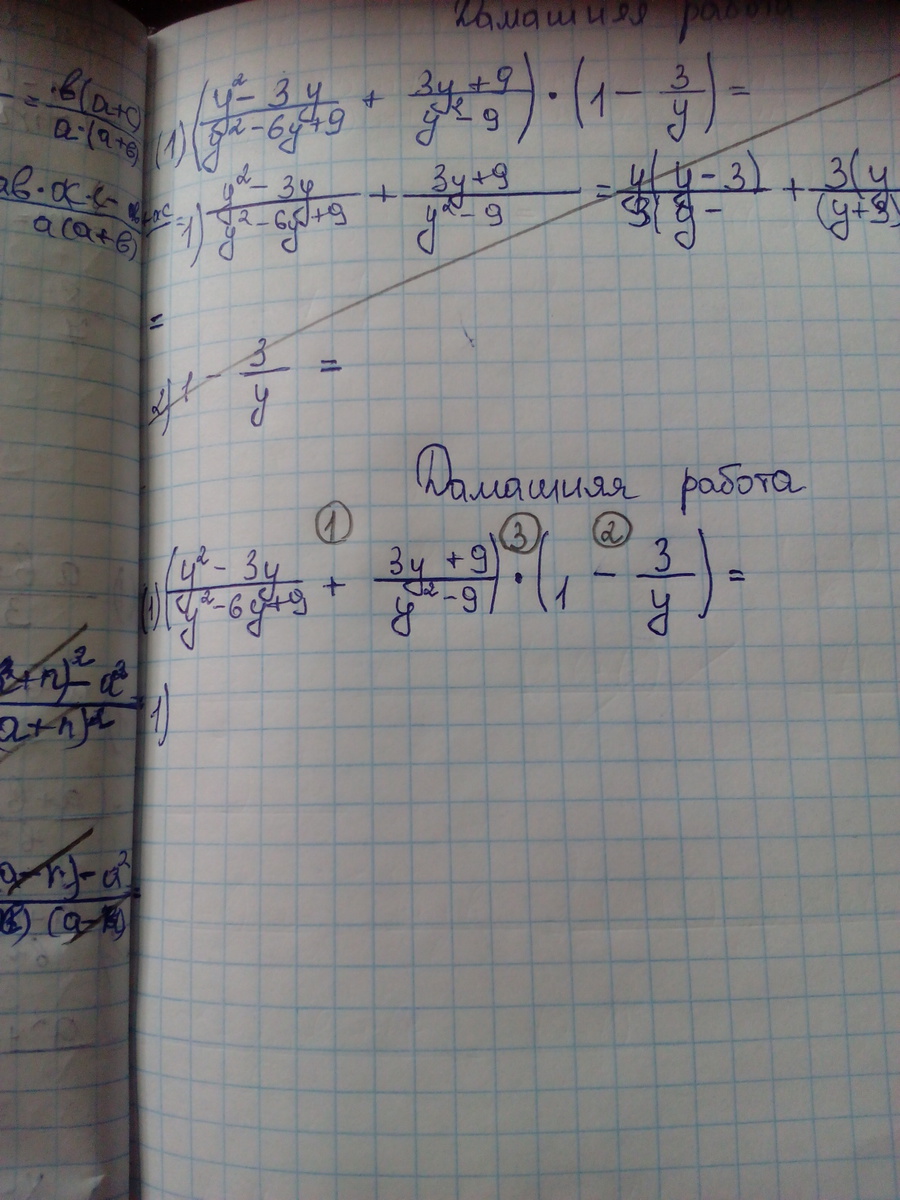 Дамашняя работа
= в(a+c) / a·(a+в)
(1) ((y² - 3y)/(y² - 6y + 9) + (3y + 9)/(y² - 9)) · (1 - 3/y) =
a(a+в)
=1) (y² - 3y)/(y² - 6y + 9) + (3y + 9)/(y² - 9) = y(y - 3)
+ 3(y
=
2) 1 - 3/y =
Дамашняя работа
1 3 2
(1) ((y² - 3y)/(y² - 6y + 9) + (3y + 9)/(y² - 9)) · (1 - 3/y) =
+n)² - a² / a+n)²
1)
a-n) - a²